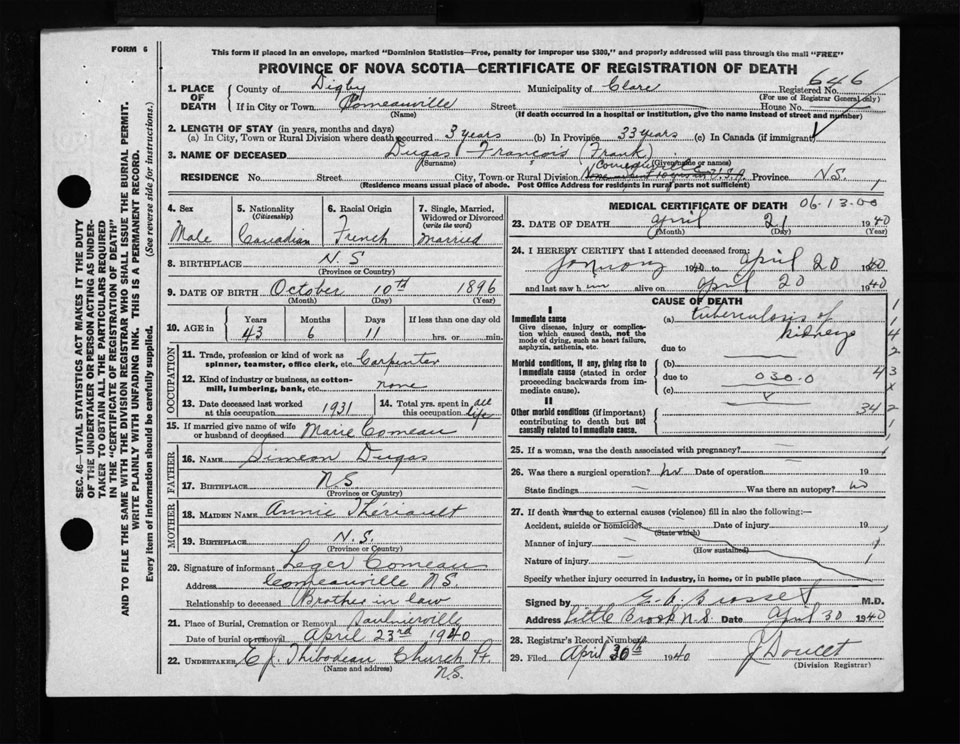 FORM 6
This form if placed in an envelope, marked "Dominion Statistics—Free, penalty for improper use $300," and properly addressed will pass through the mail "FREE"
PROVINCE OF NOVA SCOTIA—CERTIFICATE OF REGISTRATION OF DEATH
646
1. PLACE OF DEATH
County of Digby Municipality of Clare Registered No.
(For use of Registrar General only)
If in City or Town Comeauville Street House No.
(Name) (If death occurred in a hospital or institution, give the name instead of street and number)
2. LENGTH OF STAY (in years, months and days)
(a) In City, Town or Rural Division where death occurred 3 years (b) In Province 33 years (c) In Canada (if immigrant)
3. NAME OF DECEASED Dugas Francois (Frank)
(Surname) (Given name or names)
RESIDENCE No. Street City, Town or Rural Division Comeauville U.S.A. Province N.S.
(Residence means usual place of abode. Post Office Address for residents in rural parts not sufficient)
4. Sex Male
5. Nationality (Citizenship) Canadian
6. Racial Origin French
7. Single, Married, Widowed or Divorced (write the word) Married
8. BIRTHPLACE N.S
(Province or Country)
9. DATE OF BIRTH October 10th 1896
(Month) (Day) (Year)
10. AGE in Years 43 Months 6 Days 11 If less than one day old hrs. or min.
OCCUPATION
11. Trade, profession or kind of work as spinner, teamster, office clerk, etc. Carpenter
12. Kind of industry or business, as cotton-mill, lumbering, bank, etc. none
13. Date deceased last worked at this occupation 1931
14. Total yrs. spent in this occupation all life
15. If married give name of wife or husband of deceased Marie Comeau
FATHER
16. NAME Simeon Dugas
17. BIRTHPLACE N.S
(Province or Country)
MOTHER
18. MAIDEN NAME Annie Thériault
19. BIRTHPLACE N.S.
(Province or Country)
20. Signature of informant Leger Comeau
Address Comeauville N.S.
Relationship to deceased Brother in law
21. Place of Burial, Cremation or Removal Saulnierville
Date of burial or removal April 23rd 1940
22. UNDERTAKER E.J. Thibodeau Church Pt. N.S.
(Name and address)
MEDICAL CERTIFICATE OF DEATH 06-13-00
23. DATE OF DEATH April 21 1940
(Month) (Day) (Year)
24. I HEREBY CERTIFY that I attended deceased from:
January 1940 to April 20 1940
and last saw him alive on April 20 1940
CAUSE OF DEATH
I
Immediate cause
Give disease, injury or complication which caused death, not the mode of dying, such as heart failure, asphyxia, asthenia, etc.
(a) tuberculosis of kidneys
due to
Morbid conditions, if any, giving rise to immediate cause (stated in order proceeding backwards from immediate cause).
(b)
due to 030.0
(c)
II
Other morbid conditions (if important) contributing to death but not causally related to immediate cause.
34
25. If a woman, was the death associated with pregnancy?
26. Was there a surgical operation? no Date of operation 19
State findings Was there an autopsy? no
27. If death was due to external causes (violence) fill in also the following:—
Accident, suicide or homicide? Date of injury 19
(State which)
Manner of injury
(How sustained)
Nature of injury
Specify whether injury occurred in industry, in home, or in public place
Signed by M.D.
Address Little Brook N.S. Date April 30 1940
28. Registrar's Record Number
29. Filed April 30th 1940 J Doucet
(Division Registrar)
SEC. 46—VITAL STATISTICS ACT MAKES IT THE DUTY
OF THE UNDERTAKER OR PERSON ACTING AS UNDER-
TAKER TO OBTAIN ALL THE PARTICULARS REQUIRED
IN THE "CERTIFICATE OF REGISTRATION OF DEATH"
AND TO FILE THE SAME WITH THE DIVISION REGISTRAR WHO SHALL ISSUE THE BURIAL PERMIT.
WRITE PLAINLY WITH UNFADING INK. THIS IS A PERMANENT RECORD.
Every item of information should be carefully supplied. (See reverse side for instructions.)